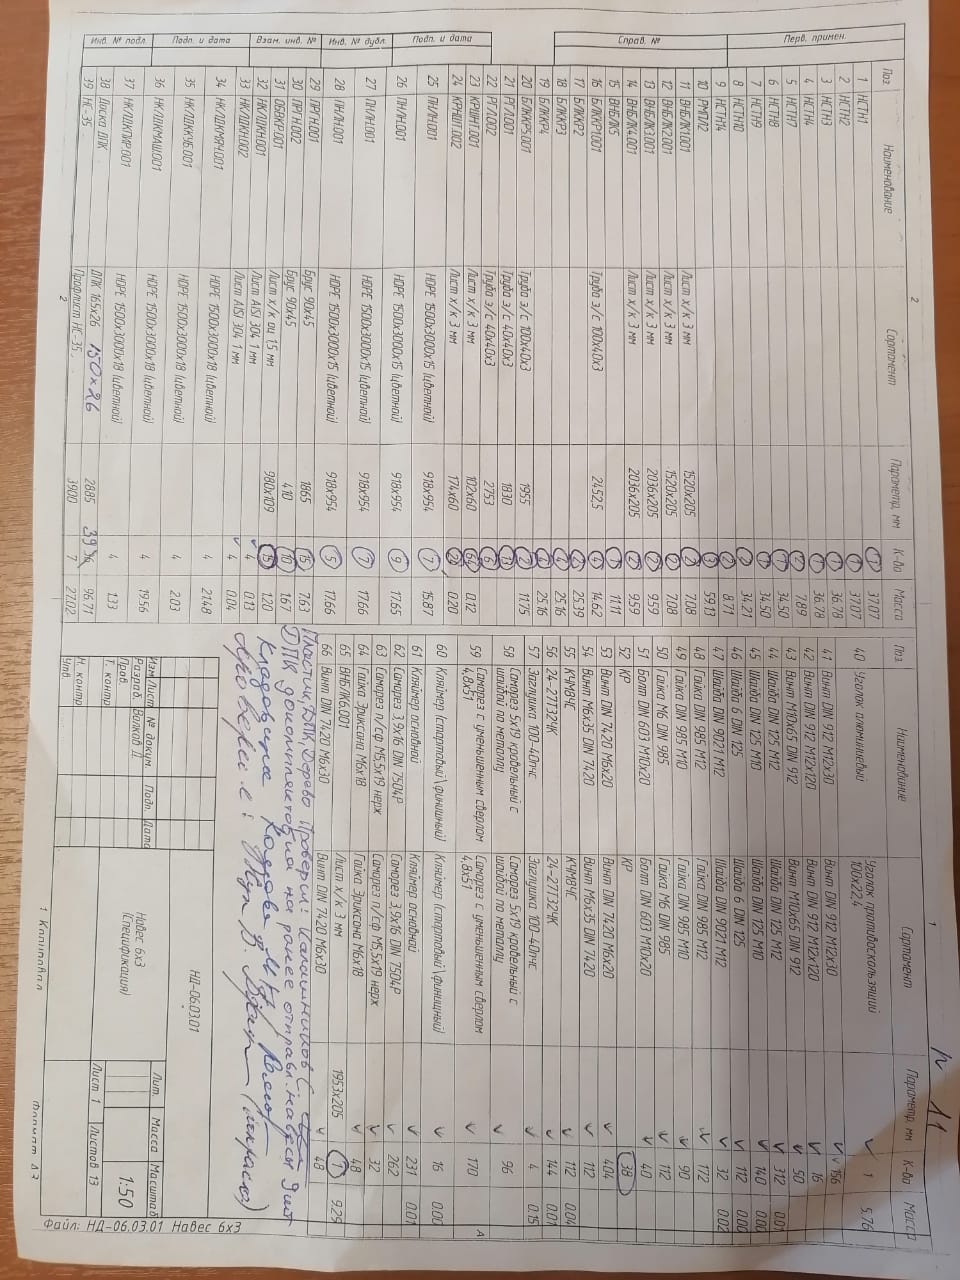 Перв. примен.
Справ. №
Подп. и дата
Инв. № дубл.
Взам. инв. №
Подп. и дата
Инв. № подл.
Поз. Наименование Сортамент Параметр, мм К-во Масса
1 НСТН1 1 37.07
2 НСТН2 1 37.07
3 НСТН3 1 36.78
4 НСТН4 1 36.78
5 НСТН7 7.89
6 НСТН8 1 34.50
7 НСТН9 1 34.50
8 НСТН10 34.21
9 НСТН14 8.71
10 РМПЛ2 59.13
11 ВНБЛК1.001 Лист х/к 3 мм 1520х205 7.08
12 ВНБЛК2.001 Лист х/к 3 мм 1520х205 7.08
13 ВНБЛК3.001 Лист х/к 3 мм 2036х205 9.59
14 ВНБЛК4.001 Лист х/к 3 мм 2036х205 9.59
15 ВНБЛК5 11.11
16 БЛККР1.001 Труба э/с 100х40х3 2452.5 14.62
17 БЛККР2 25.39
18 БЛККР3 25.16
19 БЛККР4 25.16
20 БЛККР5.001 Труба э/с 100х40х3 1955 11.75
21 РУД.001 Труба э/с 40х40х3 1830
22 РУД.002 Труба э/с 40х40х3 2753
23 КРШНТ.001 Лист х/к 3 мм 102х60 64 0.12
24 КРШНТ.002 Лист х/к 3 мм 174х60 0.20
25 ПНЛН.001 HDPE 1500х3000х15 (цветной) 918х954 15.87
26 ПНЛН.001 HDPE 1500х3000х15 (цветной) 918х954 9 17.65
27 ПНЛН.001 HDPE 1500х3000х15 (цветной) 918х954 17.66
28 ПНЛН.001 HDPE 1500х3000х15 (цветной) 918х954 5 17.66
29 ПРГН.001 Брус 90х45 1865 15 7.63
30 ПРГН.002 Брус 90х45 410 10 1.67
31 ОБВКР.001 Лист х/к оц 1.5 мм 980х109 15 1.20
32 НКЛДКН.001 Лист AISI 304 1 мм 4 0.13
33 НКЛДКН.002 Лист AISI 304 1 мм 4 0.04
34 НКЛДКМЯЧ.001 HDPE 1500х3000х18 (цветной) 4 21.48
35 НКЛДККУБ.001 HDPE 1500х3000х18 (цветной) 4 2.03
36 НКЛДКМАШ.001 HDPE 1500х3000х18 (цветной) 4 19.56
37 НКЛДКПИР.001 HDPE 1500х3000х18 (цветной) 4 1.33
38 Доска ДПК ДПК 165х26 150х26 2885 39 96.71
39 НС-35 Профлист НС-35 3900 7 27.02
Поз. Наименование Сортамент Параметр, мм К-во Масса
40 Уголок алюминиевый Уголок противоскользящий 100х22,4 1 5.76
41 Винт DIN 912 М12х30 Винт DIN 912 М12х30 156
42 Винт DIN 912 М12х120 Винт DIN 912 М12х120 16
43 Винт М10х65 DIN 912 Винт М10х65 DIN 912 50
44 Шайба DIN 125 М12 Шайба DIN 125 М12 312 0.01
45 Шайба DIN 125 М10 Шайба DIN 125 М10 140 0.00
46 Шайба 6 DIN 125 Шайба 6 DIN 125 112 0.00
47 Шайба DIN 9021 М12 Шайба DIN 9021 М12 32 0.02
48 Гайка DIN 985 М12 Гайка DIN 985 М12 172
49 Гайка DIN 985 М10 Гайка DIN 985 М10 90
50 Гайка М6 DIN 985 Гайка М6 DIN 985 112
51 Болт DIN 603 М10х20 Болт DIN 603 М10х20 40
52 КР КР 38
53 Винт DIN 7420 М6х20 Винт DIN 7420 М6х20 404
54 Винт М6х35 DIN 7420 Винт М6х35 DIN 7420 112
55 КЧМ8ЧЕ КЧМ8ЧЕ 112 0.04
56 24-27ТЗ2ЧК 24-27ТЗ2ЧК 144 0.01
57 Заглушка 100-40пчс Заглушка 100-40пчс 4 0.15
58 Саморез 5х19 кровельный с шайбой по металлу Саморез 5х19 кровельный с шайбой по металлу 96
59 Саморез с уменьшенным сверлом 4,8х51 Саморез с уменьшенным сверлом 4,8х51 170
60 Кляймер (стартовый\финишный) Кляймер (стартовый\финишный) 16 0.00
61 Кляймер основной Кляймер основной 231 0.01
62 Саморез 3,9х16 DIN 7504P Саморез 3,9х16 DIN 7504P 262
63 Саморез п/сф М5,5х19 нерж Саморез п/сф М5,5х19 нерж 32
64 Гайка Эриксона М6х18 Гайка Эриксона М6х18 48
65 ВНБЛК6.001 Лист х/к 3 мм 1953х205 1 9.25
66 Винт DIN 7420 М6х30 Винт DIN 7420 М6х30 48
Пластик, ДПК, Дерево проверил: Калашников С.
ДПК докомплектация на ранее отправл. навесы 9шт
Изм. Лист № докум. Подп. Дата
Разраб. Волков Д.
Пров.
Т. контр.
Н. контр.
Утв.
НД-06.03.01
Навес 6х3
(Спецификация)
Лит. Масса Масштаб
1:50
Лист 1 Листов 13
Копировал
Формат А3
Файл: НД-06.03.01 Навес 6х3